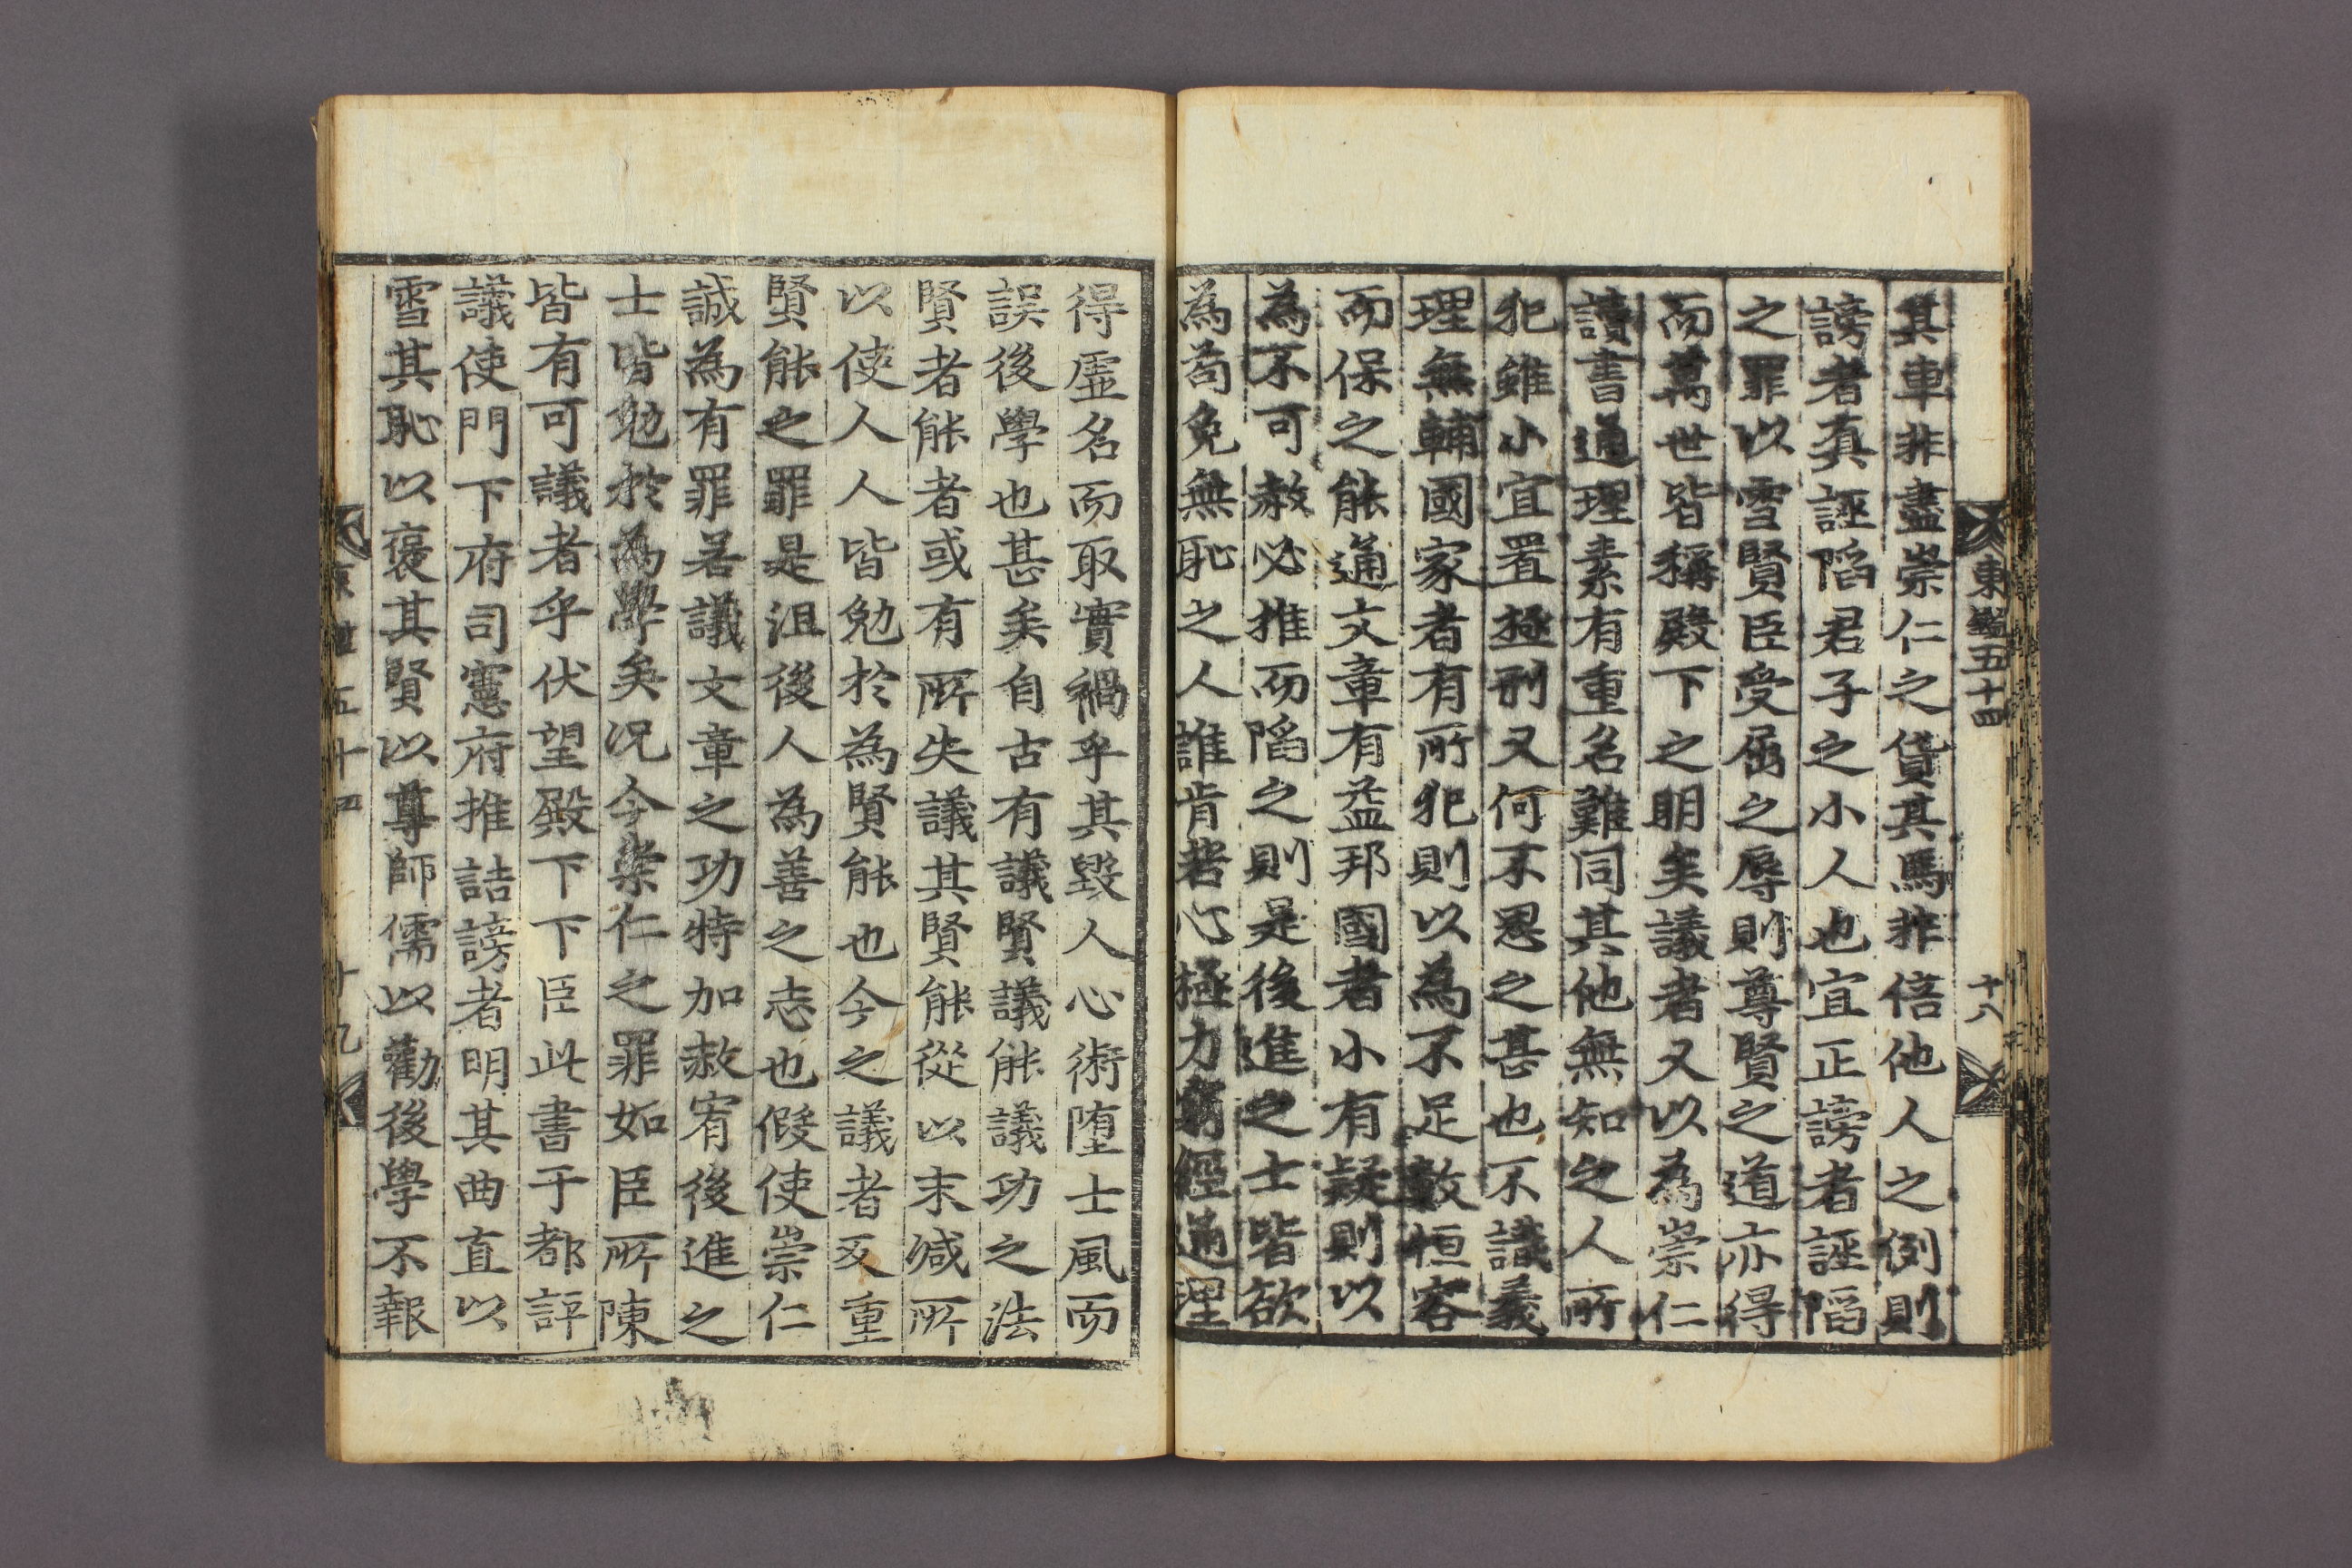 東鑑五十四
十八
其車非盡崇仁之貸其馬非倍他人之例則
謗者真誣陷君子之小人也宜正謗者誣陷
之罪以雪賢臣受屈之辱則尊賢之道亦得
而萬世皆稱殿下之明矣議者又以為崇仁
讀書通理素有重名難同其他無知之人所
犯雖小宜置極刑又何不思之甚也不識義
理無輔國家者有所犯則以為不足數恒容
而保之能通文章有益邦國者小有疑則以
為不可赦必推而陷之則是後進之士皆欲
為苟免無恥之人誰肯苦心極力窮經通理
得虛名而取實禍乎其毀人心術墮士風而
誤後學也甚矣自古有議賢議能議功之法
賢者能者或有所失議其賢能從以末減所
以使人人皆勉於為賢能也今之議者反重
賢能之罪是沮後人為善之志也假使崇仁
誠為有罪若議文章之功特加赦宥後進之
士皆勉於為學矣况今崇仁之罪如臣所陳
皆有可議者乎伏望殿下下臣此書于都評
議使門下府司憲府推詰謗者明其曲直以
雪其恥以褒其賢以尊師儒以勸後學不報
五十四
十九